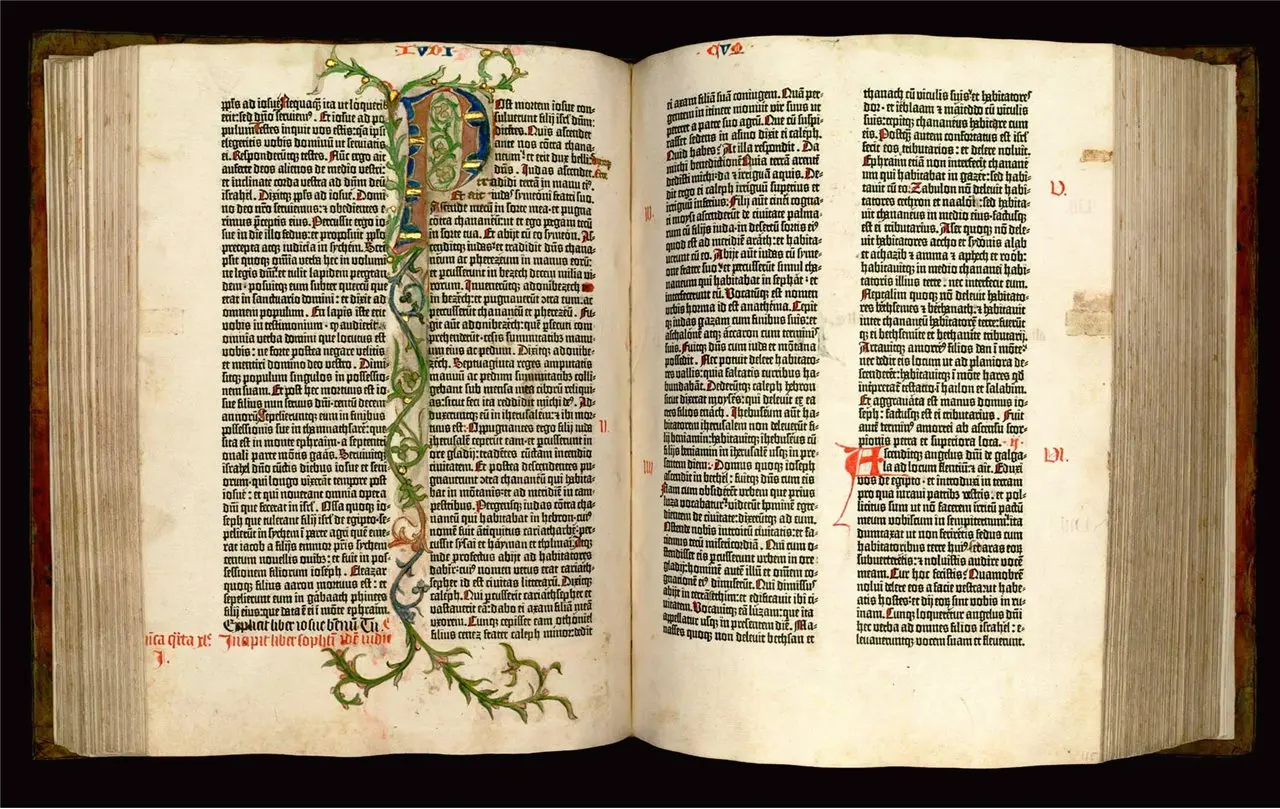 IVDI
ipsis ad iosue Nequaqȝ ita ut loqueris
erit: sed dño serviemus. Et iosue ad po-
pulum Testes inquit vos estis: qa ipsi
elegeritis vobis dominū ut serviatis
ei. Responderūtqȝ testes. Nūc ergo ait
auferte deos alienos de medio vestri:
et inclinate corda vestra ad dñm deū
israhel. Dixitqȝ pplus ad iosue. Domi-
no deo nr̄o serviemus: et obedientes e-
rimus preceptis eius. Percussit ergo io-
sue in die illo fedus: et proposuit pplo
precepta atqȝ iudicia in sychem. Scri-
psit quoqȝ om̄ia verba hec in volumi-
ne legis dn̄i: et tulit lapidem pergran-
dem: posuitqȝ eum subter quercū que
erat in sanctuario domini: et dixit ad
omnem populum. En lapis iste erit
vobis in testimonium: qȝ audierit
omnia verba domini que locutus est
vobis: ne forte postea negare velitis
et mentiri domino deo vestro. Dimi-
sitqȝ populum singulos in possessio-
nem suam. Et post hec mortuus est io-
sue filius nun servus dn̄i: centū decem
annorū: sepelieruntqȝ eum in finibus
possessionis sue in thamnathsare: que
sita est in monte ephraim: a septentri-
onali parte mōtis gaas. Servivitqȝ
israhel dn̄o cūctis diebus iosue et seni-
orum: qui longo vixerāt tempore post
iosue: et qui noverant omnia opera
dn̄i que fecerat in isrl. Ossa quoqȝ io-
seph que tulerant filij isrl de egipto: se-
pelierūt in sychem ī parte agri quē eme-
rat iacob a filijs emmor pr̄is sychem
centum novellis ovibȝ: et fuit in pos-
sessionem filiorum ioseph. Eleazar
quoqȝ filius aaron mortuus est: et
sepelierunt eum in gabaath phinees
filij eius: que data ē ei ī mōte ephraim.
Explicit liber iosue
Incipit liber sophtī
Post mortem iosue con-
suluerunt filij isrl dn̄m:
dicentes. Quis ascendet
ante nos cōtra chana-
neum: et erit dux belli?
dn̄s. Iudas ascendet.
tradidi terrā in manu eiꝰ.
Et ait iudas symeoni fratri suo.
Ascende mecū in sorte mea: et pugna
cōtra chananeū: ut et ego pergam tecū
in sorte tua. Et abijt cū eo symeon. As-
cenditqȝ iudas: et tradidit dn̄s chana-
neum ac pherezeum in manus eorū:
et percusserunt in bezech decem milia vi-
rorum. Inveneruntqȝ adonibezech
in bezech: et pugnaverūt cōtra eum: ac
percusserūt chananeū et pherezeū. Fu-
git aūt adonibezech: quē persecuti com-
prehenderūt: cesis summitatibȝ manu-
um eius ac pedum. Dixitqȝ adonibe-
zech. Septuaginta reges amputatis
manuū ac pedum summitatibȝ colli-
gebant sub mensa mea ciborū reliqui-
as: sicut feci ita reddidit michi deꝰ. Ad-
duxeruntqȝ eū in iherusalem: et ibi mor-
tuus est. Oppugnantes ergo filij iude
iherusalē ceperūt eam: et percusserunt in
ore gladij: tradētes cūctam incendio
civitatem. Et postea descendentes pu-
gnaverunt cōtra chananeū qui habita-
bat in mōtanis: et ad meridiē in cam-
pestribus. Pergensqȝ iudas cōtra cha-
naneū qui habitabat in hebron: cuiꝰ
nomē fuit ātiquitus cariatharbe: per-
cussit sysai et hayman et tholmai. Atqȝ
inde profectus abijt ad habitatores
dabir: cuiꝰ nomen vetus erat cariath-
sepher id est civitas litterarū. Dixitqȝ
caleph. Qui percusserit cariathsepher et
vastaverit eā: dabo ei axam filiā meā
uxorem. Cumqȝ cepisset eam othoniel
filius cenez frater caleph minor: dedit
II.
CVM
ei axam filiā suā coniugem. Quā per-
gentem in itinere monuit vir suus ut
peteret a patre suo agrū. Que cū suspi-
rasset sedens in asino dixit ei caleph.
Quid habes? At illa respondit. Da
michi benedictionē Quia terrā arentē
dedisti michi: da et irriguā aquis. De-
dit ergo ei caleph irriguū superius et
irriguū inferius. Filij aūt cinei cogna-
ti moysi ascenderūt de civitate palma-
rum cū filijs iuda: in desertū sortis eiꝰ
quod est ad meridiē arath: et habita-
verunt cū eo. Abijt aūt iudas cū syme-
one fratre suo: et percusserūt simul cha-
naneum qui habitabat in sephat: et
interfecerunt eū. Vocatūqȝ est nomen
urbis horma id est anathema. Cepit-
qȝ iudas gazam cum finibus suis: et
aschalonē atqȝ accaron cum terminis
suis. Fuitqȝ dn̄s cum iuda et mōtana
possedit. Nec potuit delere habitato-
res vallis: quia falcatis curribus ha-
bundabāt. Dederūtqȝ caleph hebron
sicut dixerat moyses: qui delevit ex ea
tres filios enach. Ihebuseum aūt ha-
bitatorem iherusalem non deleverūt fi-
lij beniamin: habitavitqȝ ihebuseus cū
filijs beniamin in iherusalē usqȝ in pre-
sentem diem. Domus quoqȝ ioseph
ascendit in bethel: fuitqȝ dn̄s cum eis
Nam cum obsiderēt urbem que prius
luza vocabatur: viderūt hominē egre-
dientem de civitate: dixeruntqȝ ad eum.
Ostende nobis introitū civitatis: et fa-
ciemus tecū misericordiā. Qui cum o-
stendisset eis percusserunt urbem in ore
gladij: hominē autē illū et omnem co-
gnationē eiꝰ dimiserūt. Qui dimissus
abijt in terrā sethim: et edificavit ibi ci-
vitatem. Vocavitqȝ eā luzam: que ita
appellatur usqȝ in presentem diē. Ma-
nasses quoqȝ non delevit bethsan et
III.
IIII
thanach cū viculis suis: et habitatores
dor: et ieblaam et mageddo cū viculis
suis: cepitqȝ chananeus habitare cum
eis. Postqȝ autem confortatus est isrl
fecit eos tributarios: et delere noluit.
Ephraim etiā non interfecit chananeū
um qui habitabat in gazer: sed habi-
tavit cū eo. Zabulon nō delevit habi-
tatores cethron et naalon: sed habita-
vit chananeus in medio eius: factusqȝ
est ei tributarius. Aser quoqȝ nō dele-
vit habitatores accho et sydonis alab
et achazib et amma et aphech et roob:
habitavitqȝ in medio chananei habi-
tatoris illius terre: nec interfecit eum.
Neptalim quoqȝ nō delevit habitato-
res bethsemes et bethanach: et habitavit
inter chananeū habitatorē terre: fuerūt-
qȝ ei bethsemite et bethanite tributarij.
Artavitqȝ amorreꝰ filios dan ī mōte:
nec dedit eis locum ut ad planiora de-
scenderēt: habitavitqȝ ī mōte hares qd
interpretat testatio ī hailon et salabim.
Et aggravata est manus domus io-
seph: factusqȝ est ei tributarius. Fuit
autē terminꝰ amorrei ab ascensu scor-
pionis petra et superiora loca. ·ij·
Ascenditqȝ angelus dn̄i de galga-
la ad locum flentiū: et ait. Eduxi
vos de egipto: et introduxi in terram
pro qua iuravi patribȝ vestris: et pol-
licitus sum ut nō facerem irritū pactū
meum vobiscum in sempiternum: ita
dumtaxat ut non feriretis fedus cum
habitatoribus terre huiꝰ sed aras eorū
subverteretis: et noluistis audire vocē
meam. Cur hoc fecistis? Quamobrē
nolui delere eos a facie vestra: ut habe-
atis hostes: et dij eorū sint vobis in ru-
inam. Cumqȝ loqueretur angelus dn̄i
hec verba ad omnes filios israhel: e-
levaveruntqȝ vocem suam et fleverunt.
V.
VI.